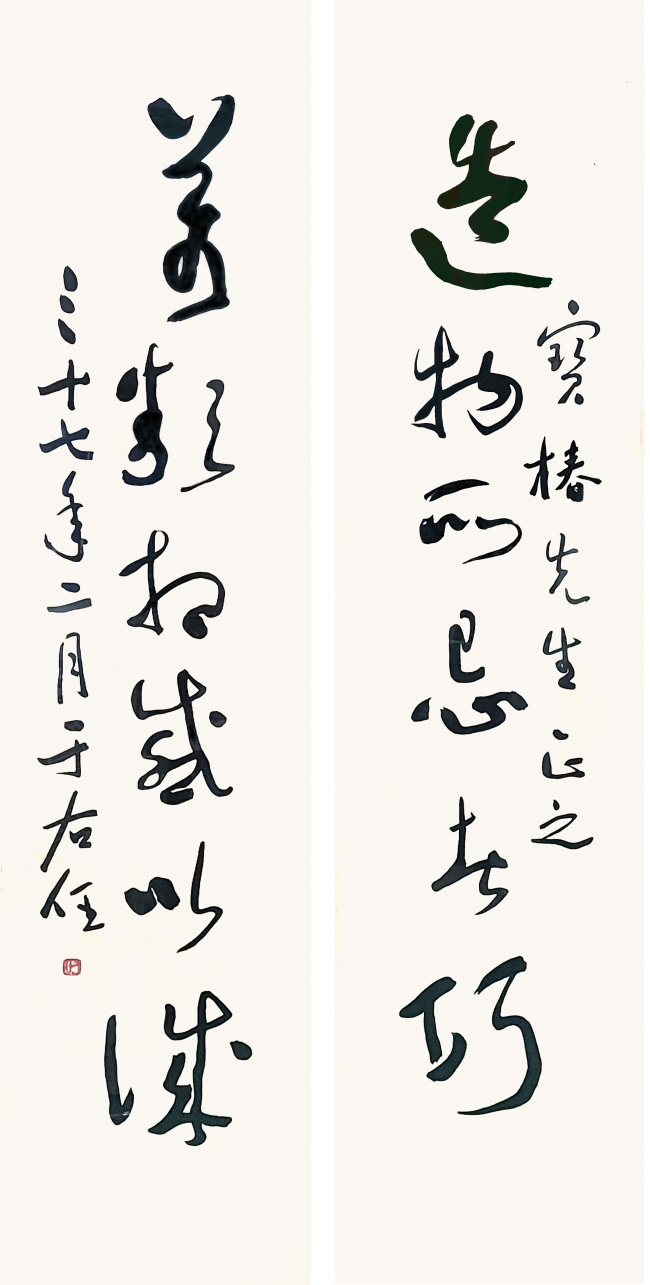 寶椿先生正之
造物所忌者巧
萬類相感以誠
三十七年二月于右任